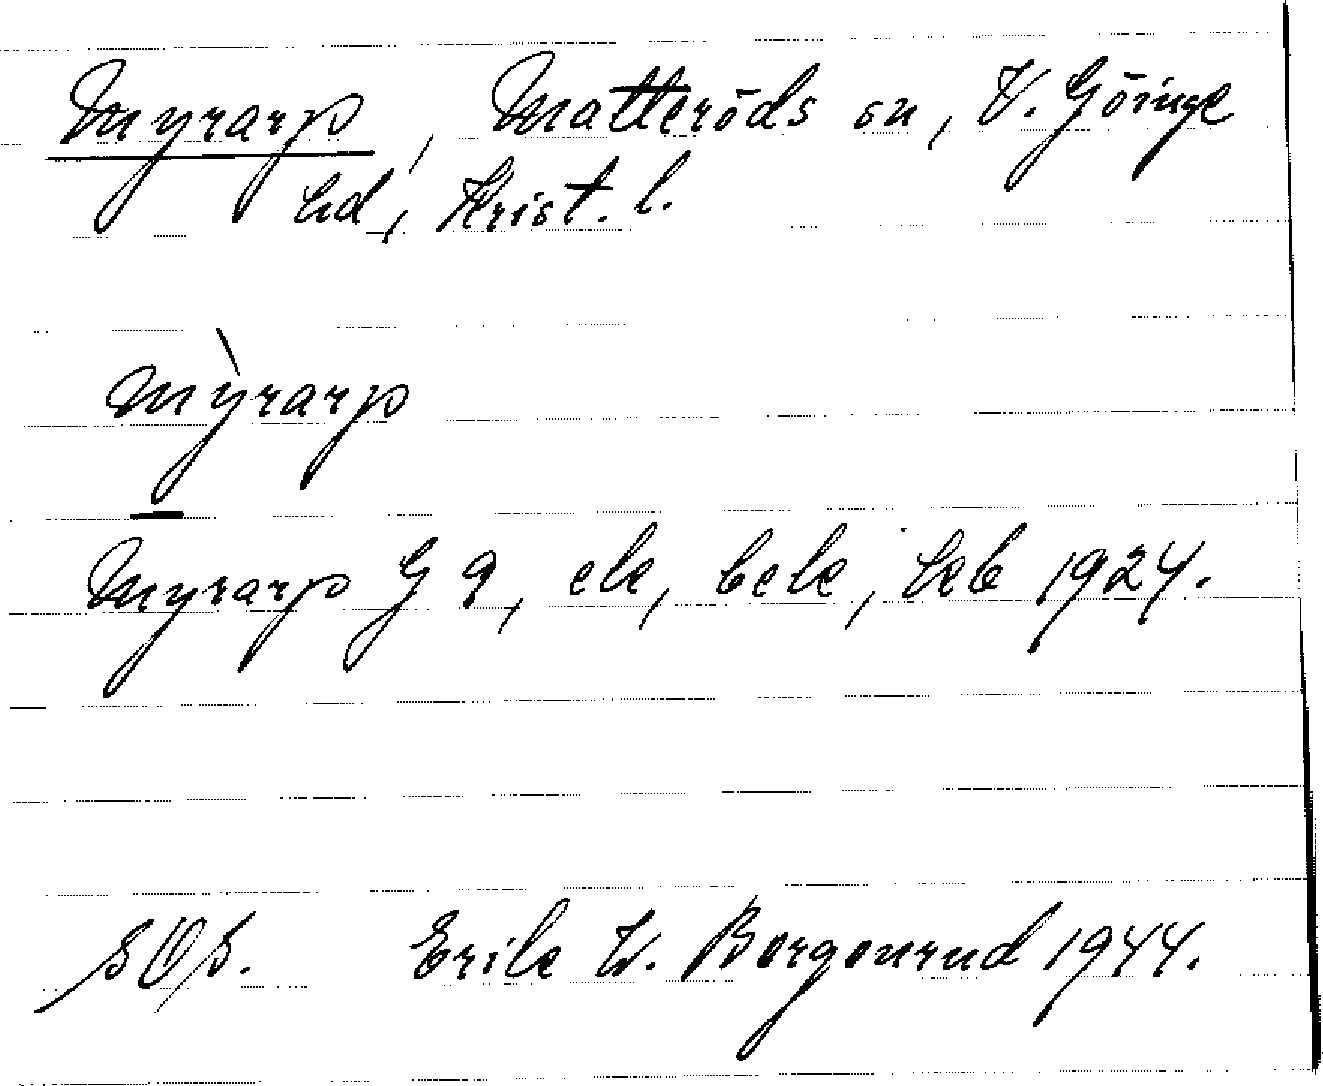 Myrarp, Matteröds sn, V. Göinge
hd, Krist. l.
Mỳrarp
Myrarp G 9, ek, bek, keb 1924.
SOS. Erik W. Borgonrud 1944.